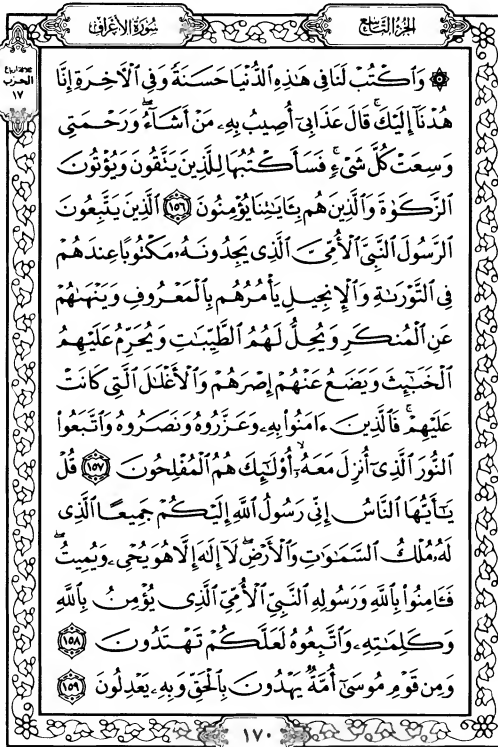 الجزء التاسع
سورة الأعراف
الحزب
١٧
۞ وَٱكْتُبْ لَنَا فِى هَٰذِهِ ٱلدُّنْيَا حَسَنَةً وَفِى ٱلْءَاخِرَةِ إِنَّا
هُدْنَآ إِلَيْكَ ۚ قَالَ عَذَابِىٓ أُصِيبُ بِهِۦ مَنْ أَشَآءُ ۖ وَرَحْمَتِى
وَسِعَتْ كُلَّ شَىْءٍ ۚ فَسَأَكْتُبُهَا لِلَّذِينَ يَتَّقُونَ وَيُؤْتُونَ
ٱلزَّكَوٰةَ وَٱلَّذِينَ هُم بِـَٔايَٰتِنَا يُؤْمِنُونَ ١٥٦ ٱلَّذِينَ يَتَّبِعُونَ
ٱلرَّسُولَ ٱلنَّبِىَّ ٱلْأُمِّىَّ ٱلَّذِى يَجِدُونَهُۥ مَكْتُوبًا عِندَهُمْ
فِى ٱلتَّوْرَىٰةِ وَٱلْإِنجِيلِ يَأْمُرُهُم بِٱلْمَعْرُوفِ وَيَنْهَىٰهُمْ
عَنِ ٱلْمُنكَرِ وَيُحِلُّ لَهُمُ ٱلطَّيِّبَٰتِ وَيُحَرِّمُ عَلَيْهِمُ
ٱلْخَبَٰٓئِثَ وَيَضَعُ عَنْهُمْ إِصْرَهُمْ وَٱلْأَغْلَٰلَ ٱلَّتِى كَانَتْ
عَلَيْهِمْ ۚ فَٱلَّذِينَ ءَامَنُوا۟ بِهِۦ وَعَزَّرُوهُ وَنَصَرُوهُ وَٱتَّبَعُوا۟
ٱلنُّورَ ٱلَّذِىٓ أُنزِلَ مَعَهُۥٓ ۙ أُو۟لَٰٓئِكَ هُمُ ٱلْمُفْلِحُونَ ١٥٧ قُلْ
يَٰٓأَيُّهَا ٱلنَّاسُ إِنِّى رَسُولُ ٱللَّهِ إِلَيْكُمْ جَمِيعًا ٱلَّذِى
لَهُۥ مُلْكُ ٱلسَّمَٰوَٰتِ وَٱلْأَرْضِ ۖ لَآ إِلَٰهَ إِلَّا هُوَ يُحْىِۦ وَيُمِيتُ ۖ
فَـَٔامِنُوا۟ بِٱللَّهِ وَرَسُولِهِ ٱلنَّبِىِّ ٱلْأُمِّىِّ ٱلَّذِى يُؤْمِنُ بِٱللَّهِ
وَكَلِمَٰتِهِۦ وَٱتَّبِعُوهُ لَعَلَّكُمْ تَهْتَدُونَ ١٥٨
وَمِن قَوْمِ مُوسَىٰٓ أُمَّةٌ يَهْدُونَ بِٱلْحَقِّ وَبِهِۦ يَعْدِلُونَ ١٥٩
١٧٠